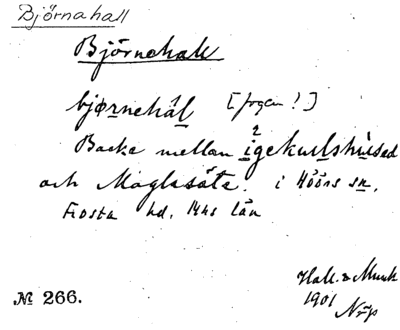 Björnahall
Björnehall
bjørnehål [frgen!]
Backe mellan igekulshusad
och Maglasäte. i Höörs sn,
Frosta hd. Mhs län
Hall. & Munk
1901
№ 266.